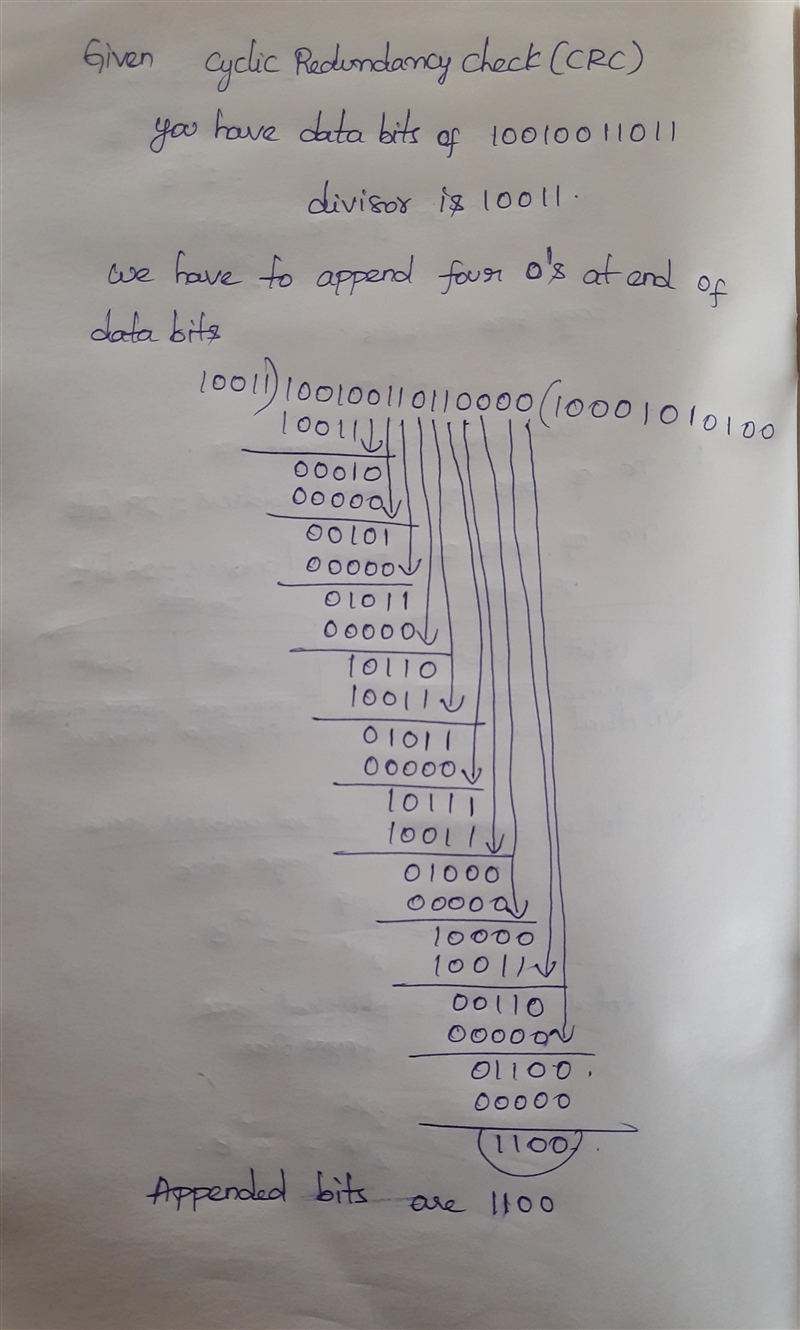 Given Cyclic Redundancy check (CRC)
you have data bits of 10010011011
divisor is 10011.
we have to append four 0's at end of
data bits
10011)100100110110000(10001010100
10011
00010
00000
00101
00000
01011
00000
10110
10011
01011
00000
10111
10011
01000
00000
10000
10011
00110
00000
01100.
00000
1100.
Appended bits are 1100